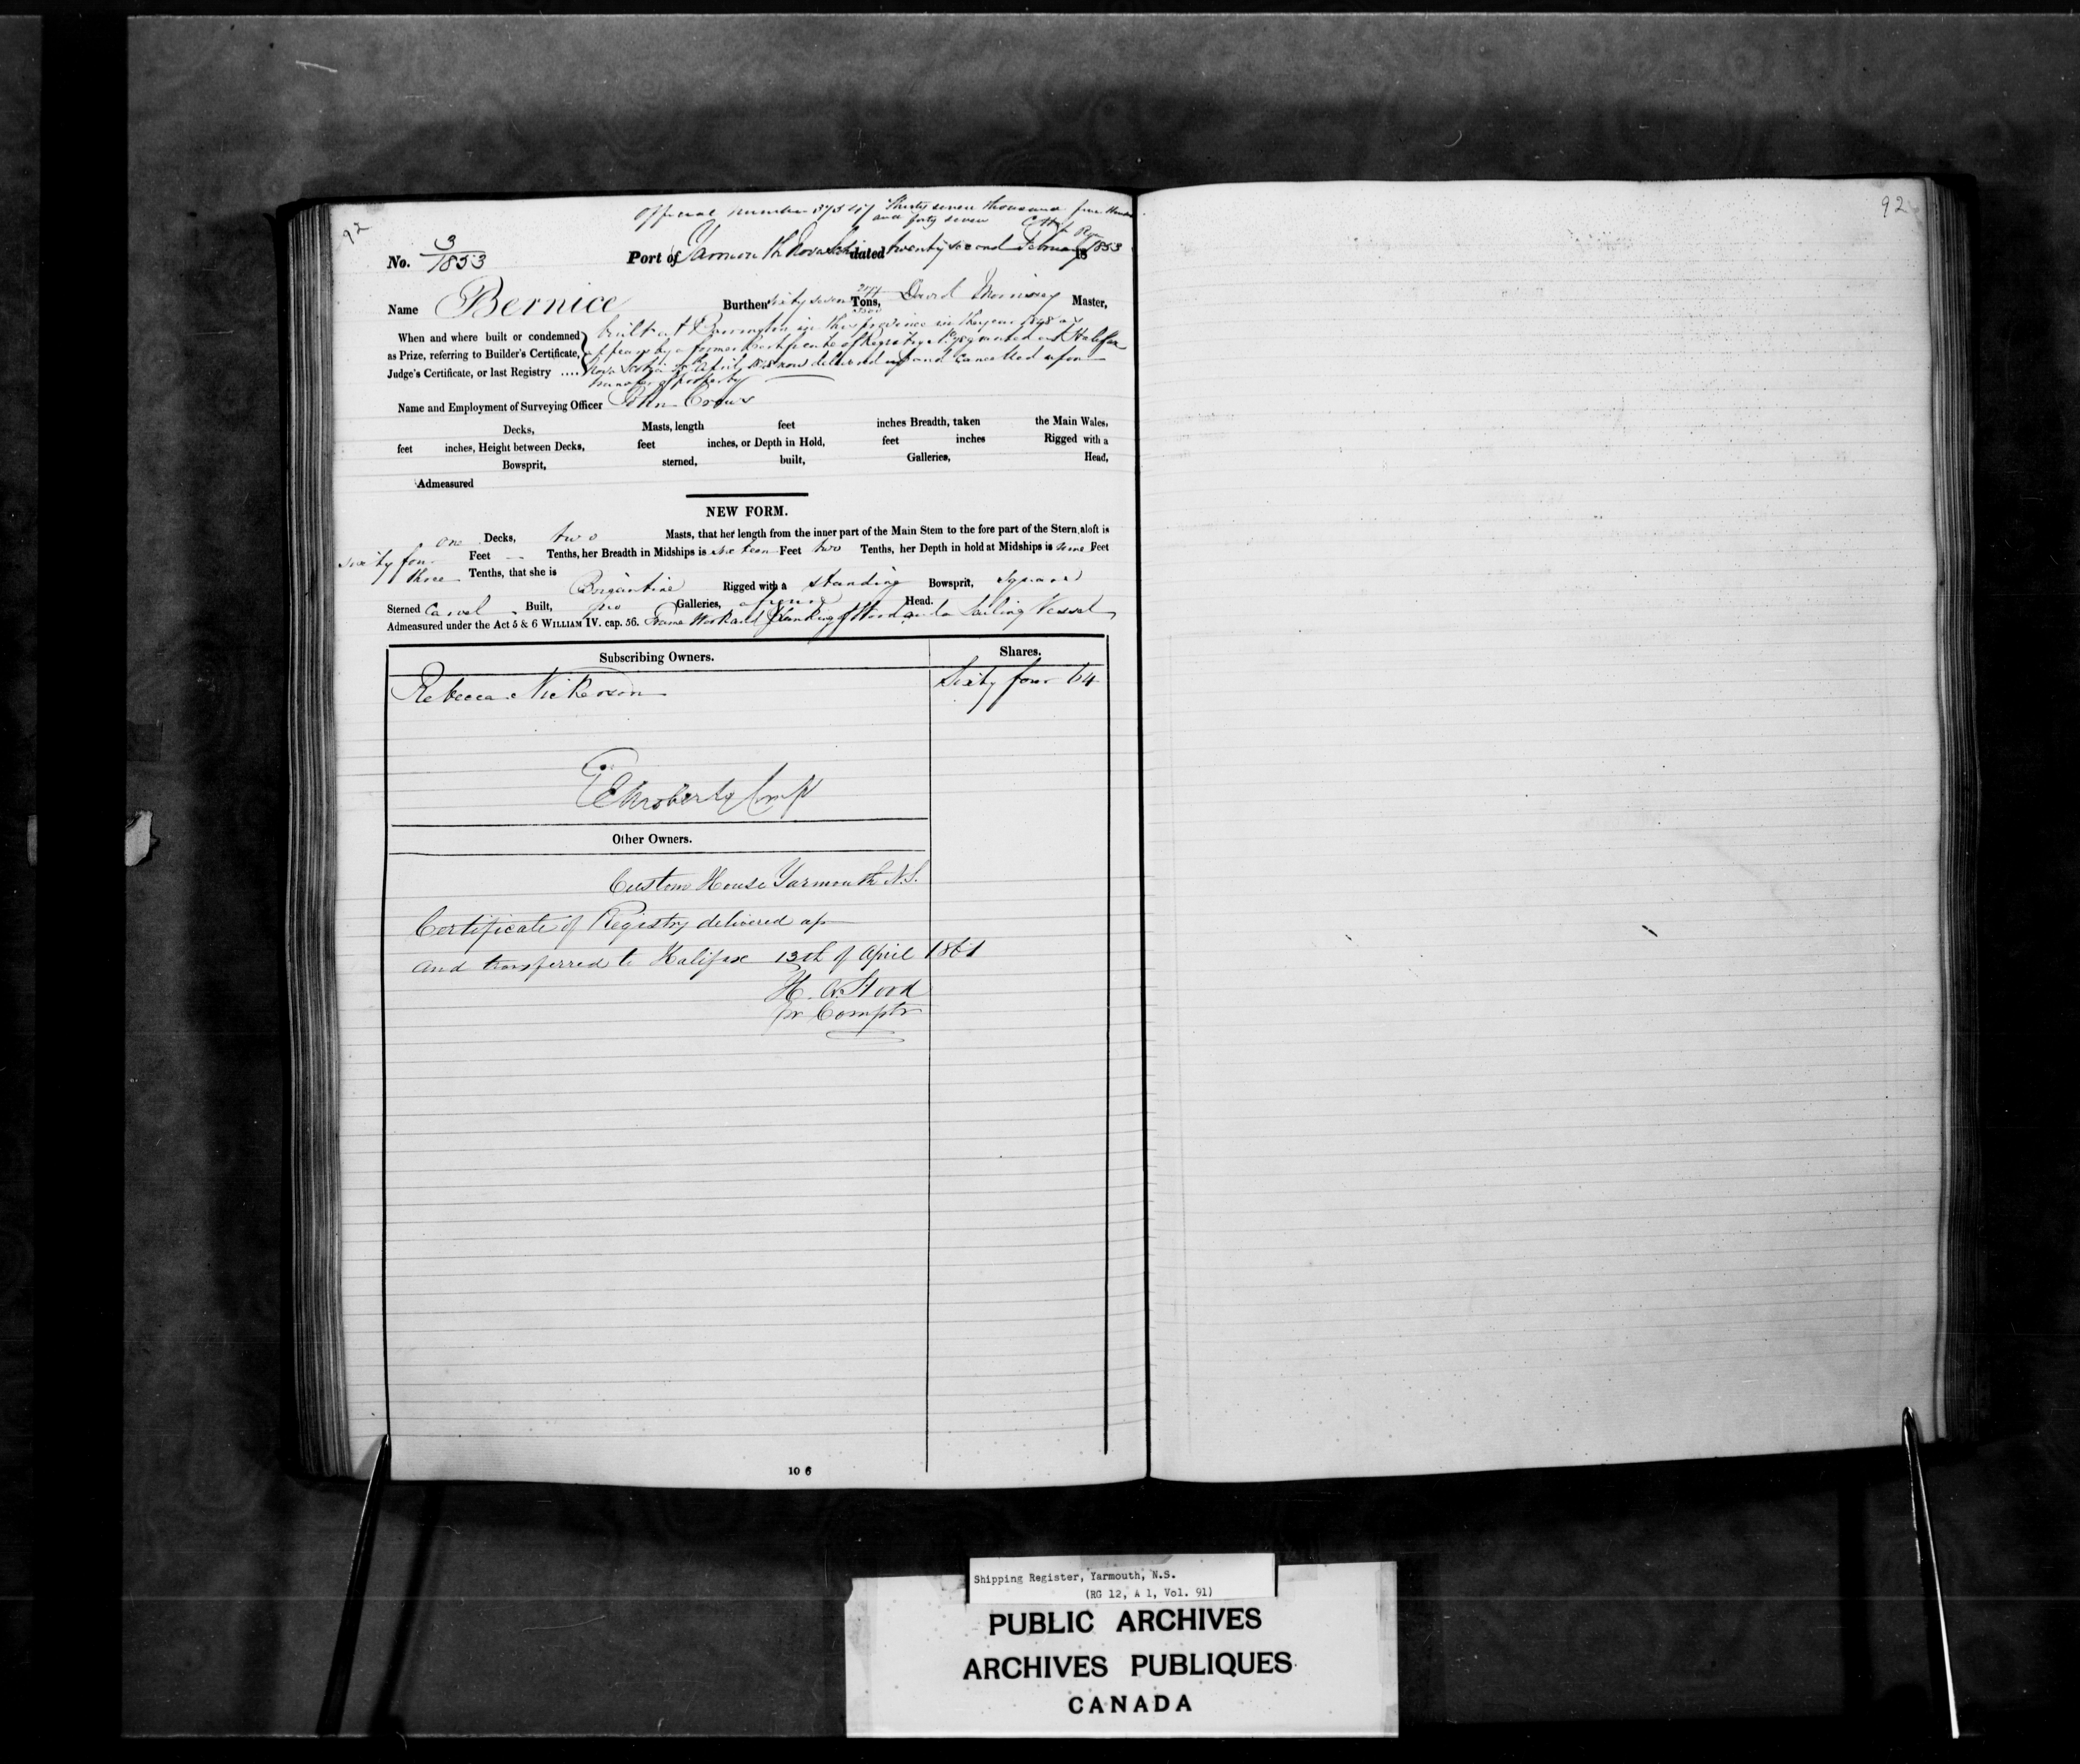 92
Official number 37547 Thirty seven thousand five Hundred
and forty seven
No. 3/1853 Port of Yarmouth Nova Scotia dated twenty second February 1853
Name Bernice Burthen sixty seven Tons, David Master,
When and where built or condemned built at Barrington in this province in the year 1848 as
as Prize, referring to Builder's Certificate, appears by a former Certificate of Registry granted at Halifax
Judge's Certificate, or last Registry .... Nova Scotia April now delivered up and cancelled upon
transfer of property
Name and Employment of Surveying Officer John Crows
Decks, Masts, length feet inches Breadth, taken the Main Wales,
feet inches, Height between Decks, feet inches, or Depth in Hold, feet inches Rigged with a
Bowsprit, sterned, built, Galleries, Head,
Admeasured
NEW FORM.
one Decks, two Masts, that her length from the inner part of the Main Stem to the fore part of the Stern aloft is
sixty four Feet — Tenths, her Breadth in Midships is sixteen Feet two Tenths, her Depth in hold at Midships is nine Feet
three Tenths, that she is Brigantine Rigged with a standing Bowsprit, square
Sterned Carvel Built, no Galleries, Head.
Admeasured under the Act 5 & 6 WILLIAM IV. cap. 56. Frame Work and Planking of Wood and a Sailing Vessel
Subscribing Owners. Shares.
Rebecca Nickerson Sixty four 64
Compt
Other Owners.
Custom House Yarmouth N.S.
Certificate of Registry delivered up
and transferred to Halifax 13th of April 1861
H. A. Hood
pr Comptr
10 6
92
Shipping Register, Yarmouth, N.S.
(RG 12, A 1, Vol. 91)
PUBLIC ARCHIVES
ARCHIVES PUBLIQUES
CANADA